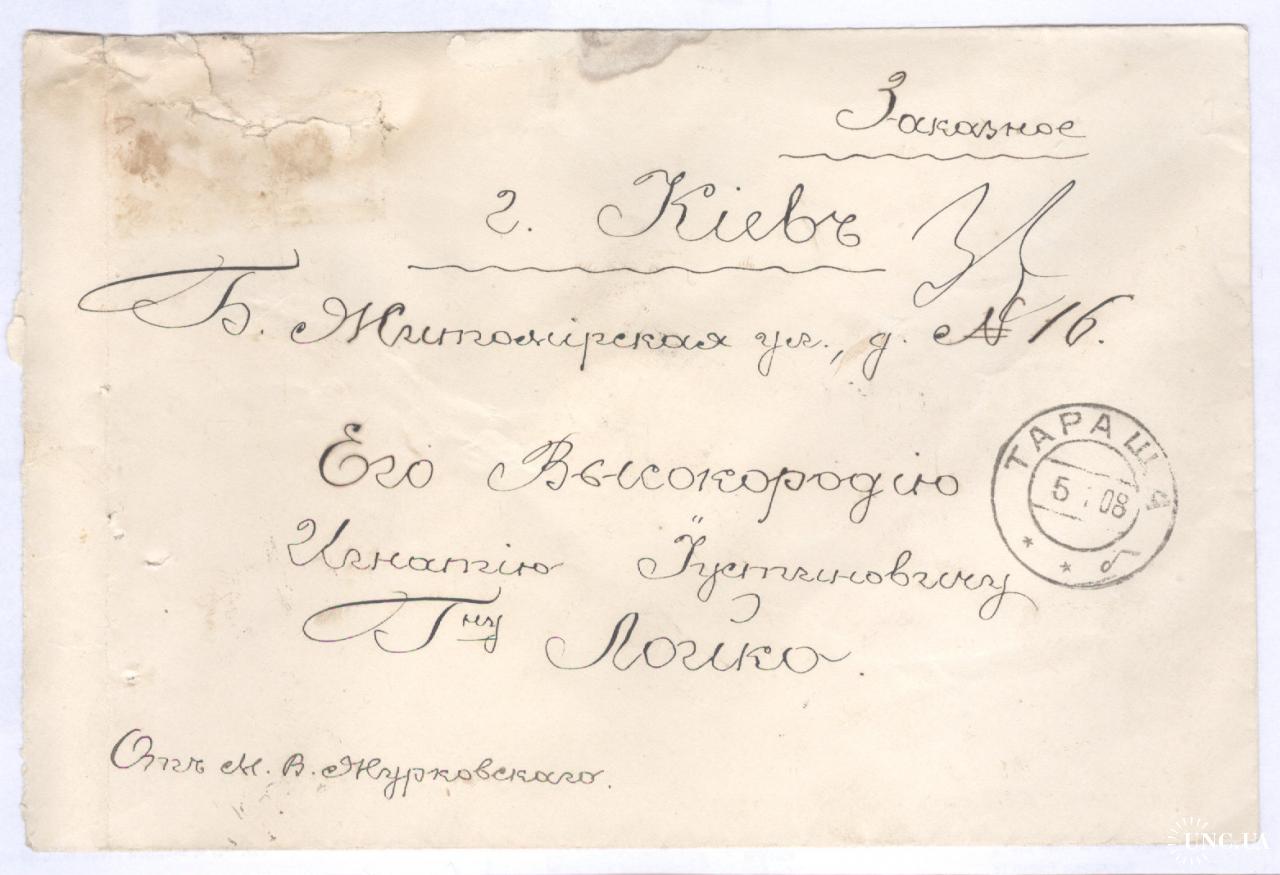 Заказное
г. Кіевъ
Б. Житомірская ул., д. № 16.
Его Высокородію
Игнатію Іустиновичу
Гну Лойко.
Отъ М. В. Журковскаго.
ТАРАЩА
5 08
UNC.UA